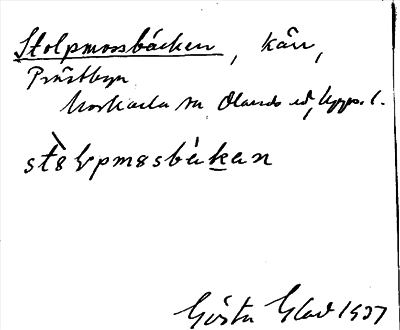 Stolpmossbäcken, kärr,
Prästbyn
Morkarla sn, Olands hd, Upps. l.
Gösta Glad 1937